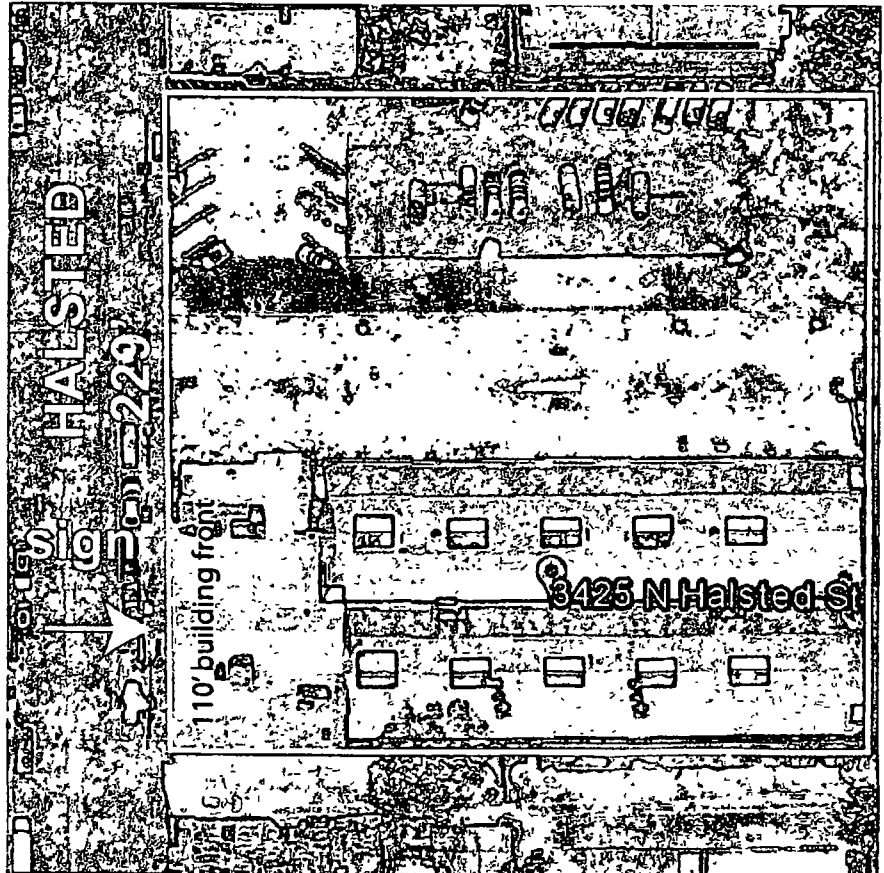 HALSTED
229
sign
110' building front
3425 N Halsted St